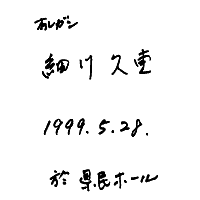 オルガン
細川久恵
1999.5.28.
於 県民ホール